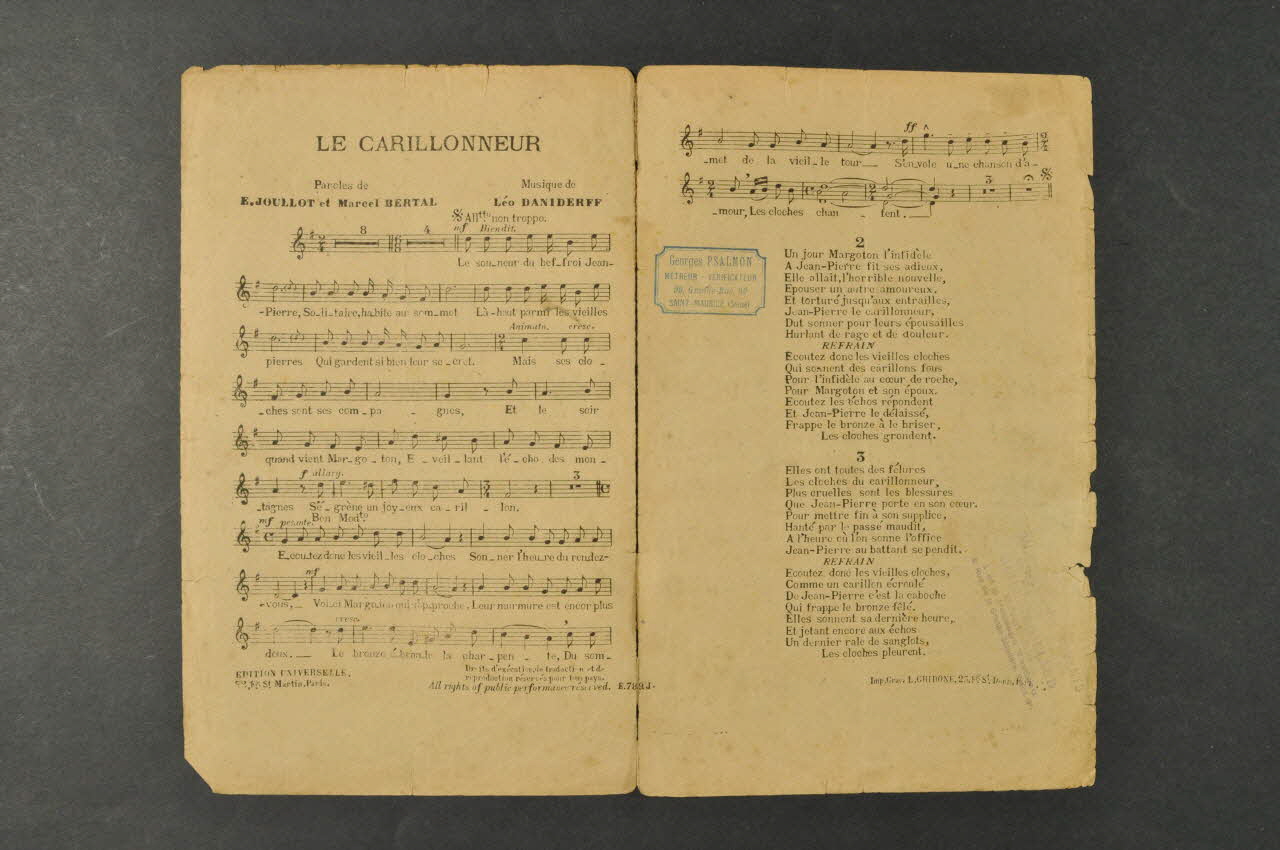 LE CARILLONNEUR
Paroles de
E. JOULLOT et Marcel BERTAL
Musique de
Léo DANIDERFF
All.tto non troppo.
mf Bien dit.
8 4
Le son_neur du bef_froi Jean-
_Pierre, So_li_taire, ha_bite au som_met Là-haut parmi les vieilles
Animato. cresc.
pierres Qui gardent si bien leur se_cret. Mais ses clo_
_ches sont ses com_pa_gnes, Et le soir
quand vient Mar_go_ton, E_veil_lant l'é_cho des mon_
f allarg. 3
_tagnes S'é_grène un joy_eux ca_ril_lon.
Ben Mod.to
mf pesante.
E_coutez donc les vieil_les clo_ches Son_ner l'heu_re du rendez-
mf
_vous, Voi_ci Margoton qui s'approche, Leur murmure est encor plus
cresc.
doux. Le bronze é_bran_le la char_pen_te, Du som_
EDITION UNIVERSELLE,
St Martin, Paris.
Droits d'exécution, de traduction et de
reproduction réservés pour tous pays.
All rights of public performance reserved. E.789.J.
ff
_met de la vieil_le tour S'en_vole u_ne chanson d'a_
3
_mour, Les cloches chan_tent.
Georges PSALMON
MÉTREUR - VÉRIFICATEUR
SAINT-MAURICE (Seine)
2
Un jour Margoton l'infidèle
A Jean-Pierre fit ses adieux,
Elle allait, l'horrible nouvelle,
Epouser un autre amoureux.
Et torturé jusqu'aux entrailles,
Jean-Pierre le carillonneur,
Dut sonner pour leurs épousailles
Hurlant de rage et de douleur.
REFRAIN
Ecoutez donc les vieilles cloches
Qui sonnent des carillons fous
Pour l'infidèle au cœur de roche,
Pour Margoton et son époux.
Ecoutez les échos répondent
Et Jean-Pierre le délaissé,
Frappe le bronze à le briser,
Les cloches grondent.
3
Elles ont toutes des fêlures
Les cloches du carillonneur,
Plus cruelles sont les blessures
Que Jean-Pierre porte en son cœur.
Pour mettre fin à son supplice,
Hanté par le passé maudit,
A l'heure où l'on sonne l'office
Jean-Pierre au battant se pendit.
REFRAIN
Ecoutez donc les vieilles cloches,
Comme un carillon écroulé
De Jean-Pierre c'est la caboche
Qui frappe le bronze fêlé.
Elles sonnent sa dernière heure,
Et jetant encore aux échos
Un dernier rale de sanglots,
Les cloches pleurent.
Imp. Grav. L. GRIDONE, 25, Fg St Denis, Paris.